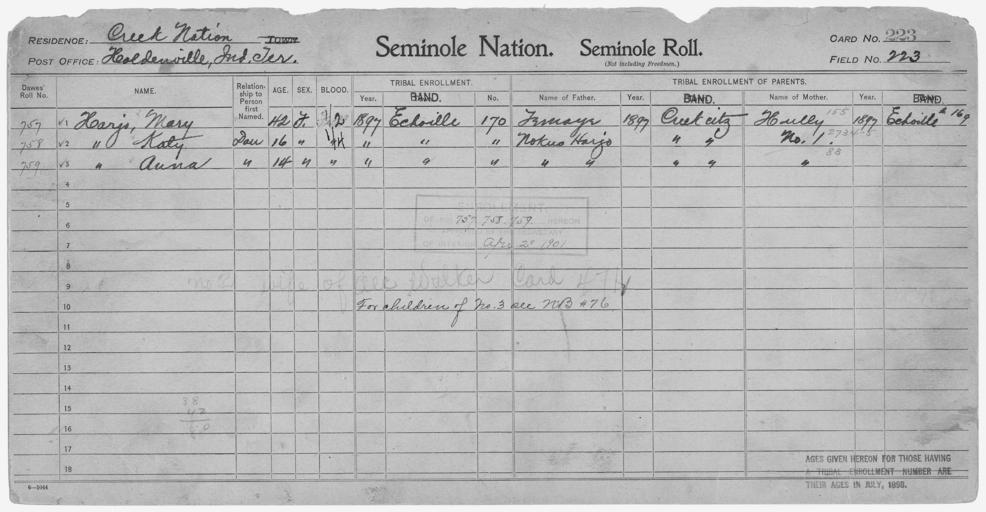 RESIDENCE: Creek Nation TOWN
POST OFFICE: Holdenville, Ind. Ter.
Seminole Nation. Seminole Roll.
(Not including Freedmen.)
CARD NO. 223
FIELD NO. 223
Dawes' Roll No. NAME. Relationship to Person first Named. AGE. SEX. BLOOD. TRIBAL ENROLLMENT. TRIBAL ENROLLMENT OF PARENTS.
Year. BAND. No. Name of Father. Year. BAND. Name of Mother. Year. BAND.
757 √1 Harjo, Mary 42 F. 1897 Echoille 170 1897 Creek city Hully 155 1897 Echoille 169
758 √2 " Katy Dau 16 " " " " Nokus Harjo " " No. 1.
759 √3 " Anna " 14 " " " " " " " " " 88
4
5
ENROLLMENT.
6 OF NOS. 757, 758, 759 HEREON
7 OF INTERIOR Apr 2" 1901
8
9 no 2 wife of Walker Card 474
10 For children of No. 3 see NB #76
11
12
13
14
15
16
17
18
AGES GIVEN HEREON FOR THOSE HAVING
A TRIBAL ENROLLMENT NUMBER ARE
THEIR AGES IN JULY, 1898.
6—1044